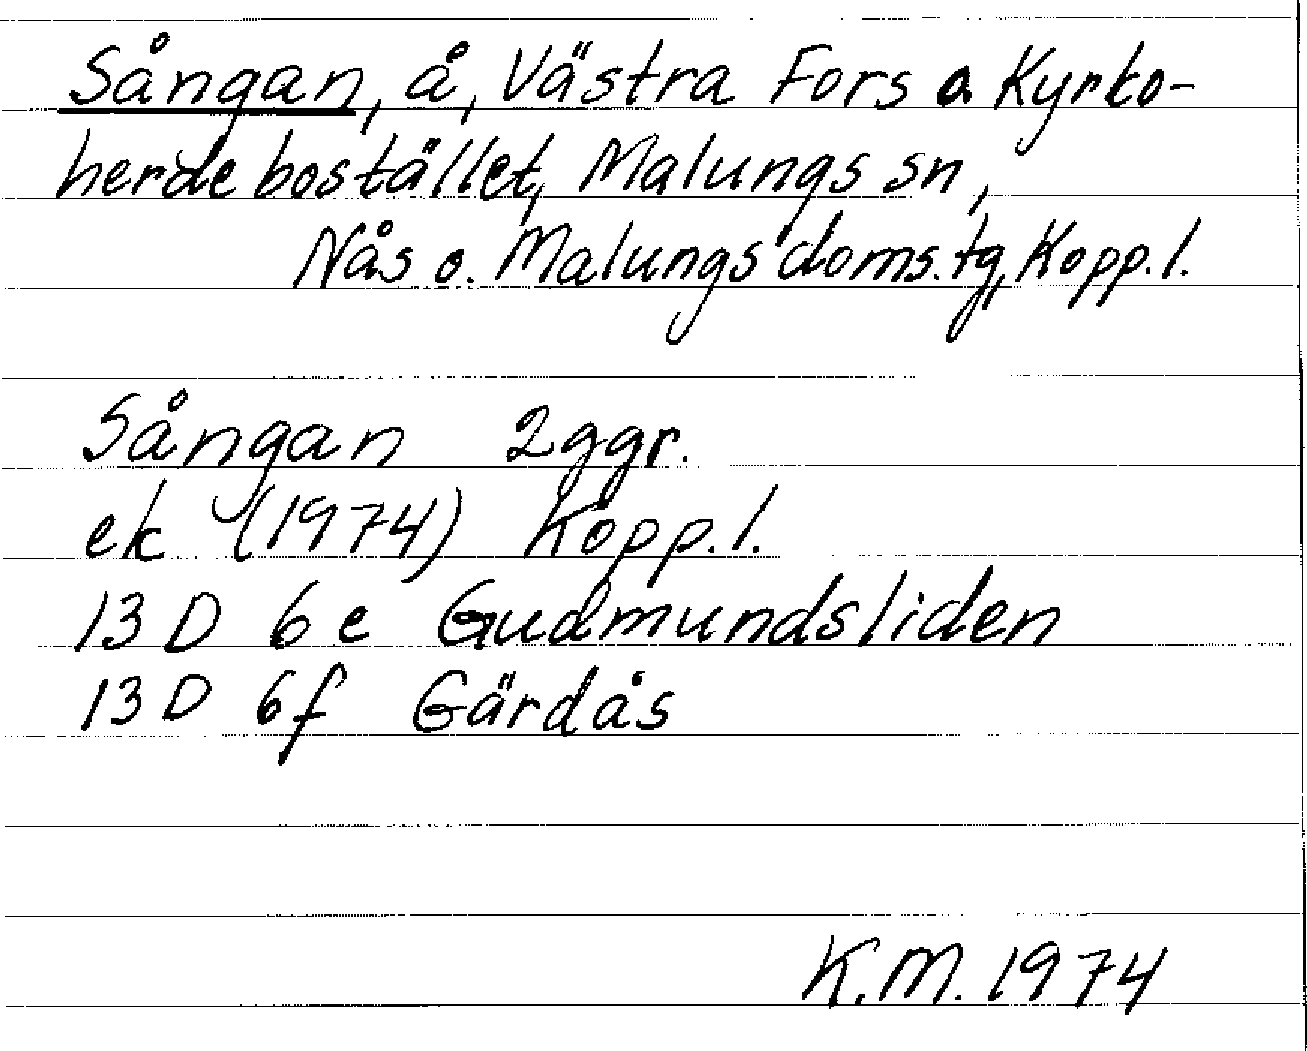 Sångan, å, Västra Fors o Kyrko-
herdebostället, Malungs sn,
Nås o. Malungs doms. tg, Kopp. l.
Sångan 2 ggr.
ek (1974) Kopp. l.
13 D 6 e Gudmundsliden
13 D 6f Gärdås
K.M. 1974